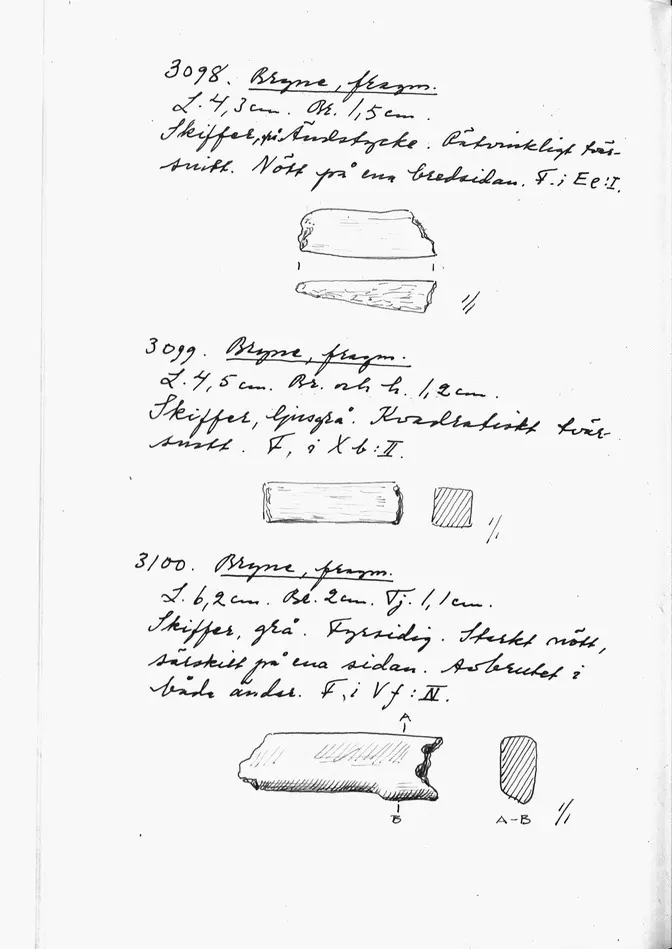 3098. Bryne, fragm.
L. 4,3 cm. Br. 1,5 cm.
Skiffer, grå. Ändstycke. Rätvinkligt tvär-
snitt. Nött på ena bredsidan. F. i Ee:I.
1/1
3099. Bryne, fragm.
L. 4,5 cm. Br. och h. 1,2 cm.
Skiffer, ljusgrå. Kvadratiskt tvär-
snitt. F. i Xb:II.
1/1
3100. Bryne, fragm.
L. 6,2 cm. Br. 2 cm. Tj. 1,1 cm.
Skiffer, grå. Fyrsidig. Starkt nött,
särskilt på ena sidan. Avbrutet i
båda ändar. F. i Vf:IV.
A
B
A-B
1/1